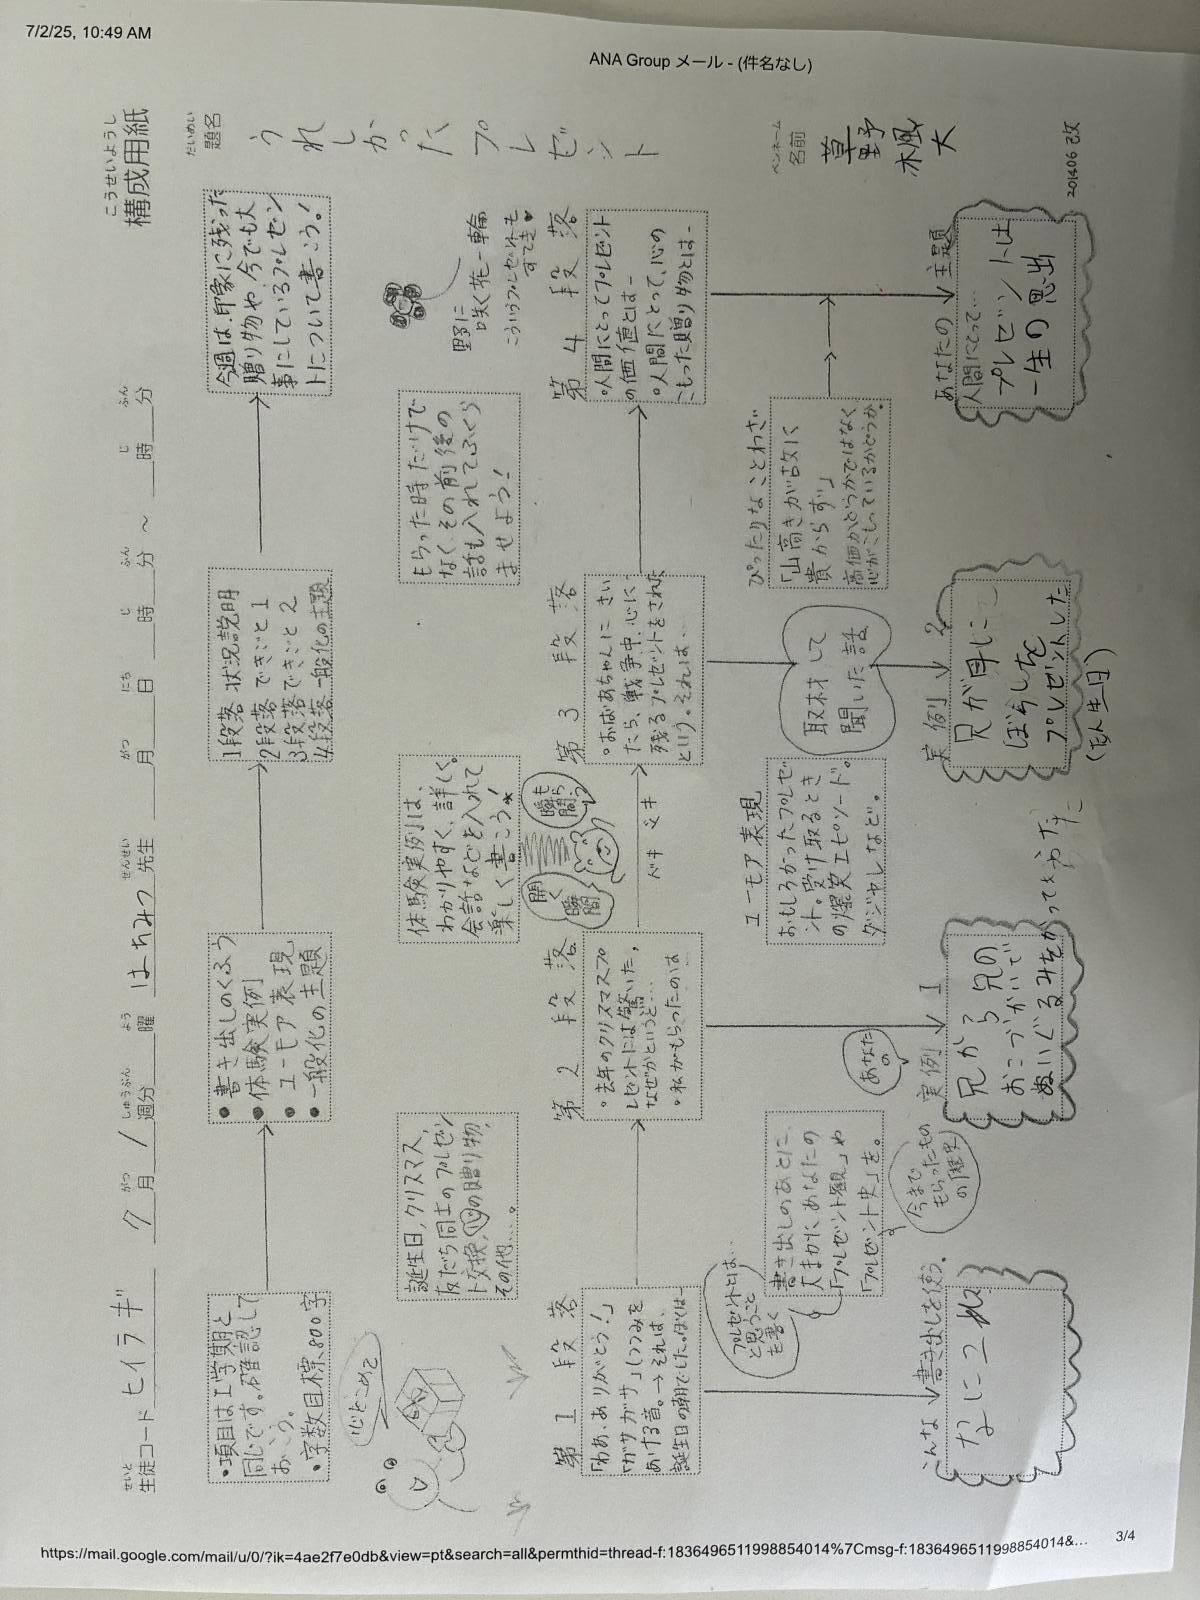 7/2/25, 10:49 AM
ANA Group メール - (件名なし)
こうせいようし
構成用紙
せいと
生徒コード ヒイラギ
がつ しゅうぶん よう
7月 1週分 曜 はちみつ先生
せんせい
がつ にち じ ふん じ ふん
月 日 時 分 〜 時 分
だいめい
題名
うれしかったプレゼント
ペンネーム
名前
草野 木風大
・項目は1学期と
同じです。確認して
おこう。
・字数目標、800字
● 書き出しのくふう
● 体験実例
● ユーモア表現
● 一般化の主題
1段落 状況説明
2段落 できごと1
3段落 できごと2
4段落 一般化の主題
今週は、印象に残った
贈り物や、今でも大
事にしているプレゼン
トについて書こう!
心をこめて
誕生日、クリスマス、
友だち同士のプレゼン
ト交換、心の贈り物、
その他…。
体験実例は、
わかりやすく、詳しく。
会話などを入れて
楽しく書こう!
開く瞬間
瞬間も
もらった時だけで
なく、その前後の
話も入れてふくら
ませよう!
野に
咲く花一輪
こういうプレゼントも
すてき
第1段落
「わあ、ありがとう!」
「ガサガサ」(つつみを
あける音。→それは、
誕生日の朝でした。ぼくは…
第2段落
・去年のクリスマスプ
レゼントには驚いた。
なぜかというと…
・私がもらったのは
ベキ
第3段落
・おばあちゃんにきい
たら、戦争中、心に
残るプレゼントをされた
という。それは…
第4段落
・人間にとってプレゼント
の価値とは…
・人間にとって、心の
こもった贈り物とは…
プレゼントとは…
と思うことを書く
書き出しのあとに、
大まかにあなたの
「プレゼント観」や
「プレゼント史」を。
今まで
もらったもの
の歴史
ユーモア表現
おもしろかったプレゼ
ント。受け取るとき
の爆笑エピソード。
ダジャレなど。
取材して
聞いた話
ぴったりなことわざ
「山高きが故に
貴からず」
高価かどうかではなく
心がこもっているかどうか。
こんな書き出しを使う。
なにこれ
あなたの
実例1
兄から兄の
おこづかいで
ぬいぐるみをかってもらった
実例2
兄が母に
ぼうしを
プレゼントした
(たん生日)
あなたの主題
人間にとって…
プレゼントは
一生の思出
201406改
https://mail.google.com/mail/u/0/?ik=4ae2f7e0db&view=pt&search=all&permthid=thread-f:1836496511998854014%7Cmsg-f:1836496511998854014&…
3/4